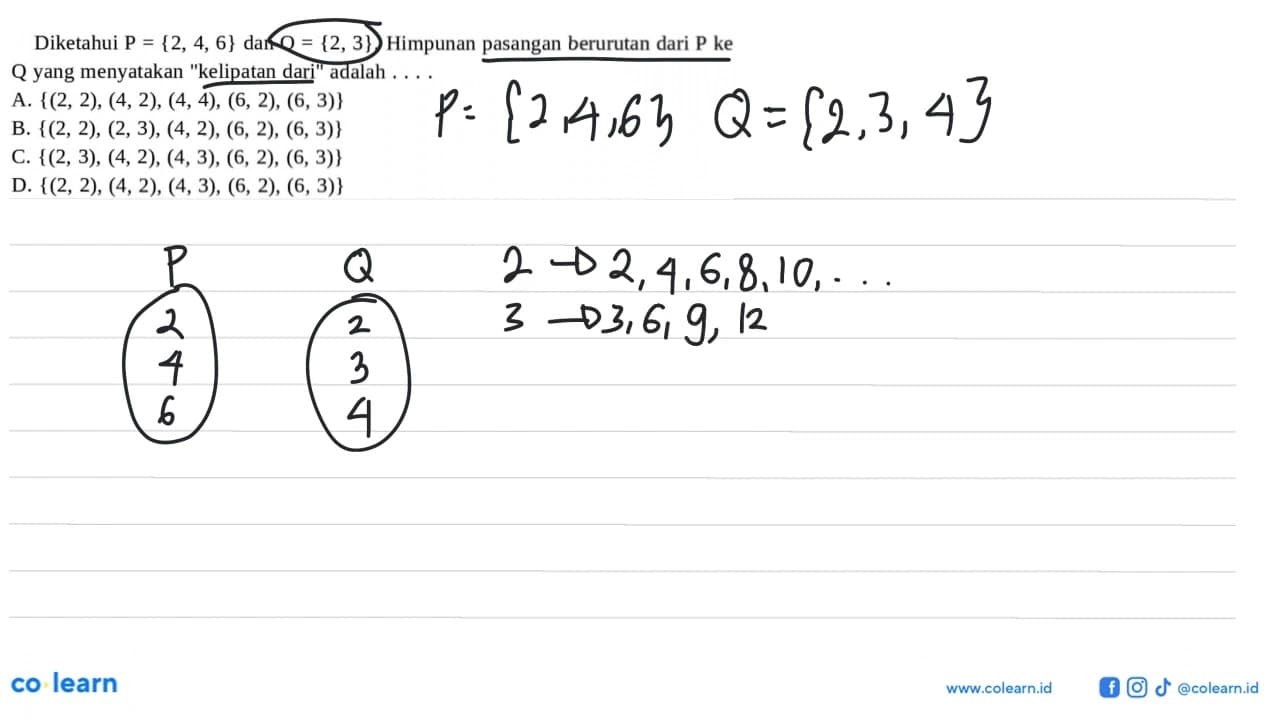 Diketahui P = {2, 4, 6} dan Q = {2, 3}. Himpunan pasangan berurutan dari P ke
Q yang menyatakan "kelipatan dari" adalah . . . .
A. {(2, 2), (4, 2), (4, 4), (6, 2), (6, 3)}
B. {(2, 2), (2, 3), (4, 2), (6, 2), (6, 3)}
C. {(2, 3), (4, 2), (4, 3), (6, 2), (6, 3)}
D. {(2, 2), (4, 2), (4, 3), (6, 2), (6, 3)}
P = {2,4,6} Q = {2,3,4}
P Q
2 2
4 3
6 4
2 → 2, 4, 6, 8, 10, ...
3 → 3, 6, 9, 12
co learn
www.colearn.id @colearn.id